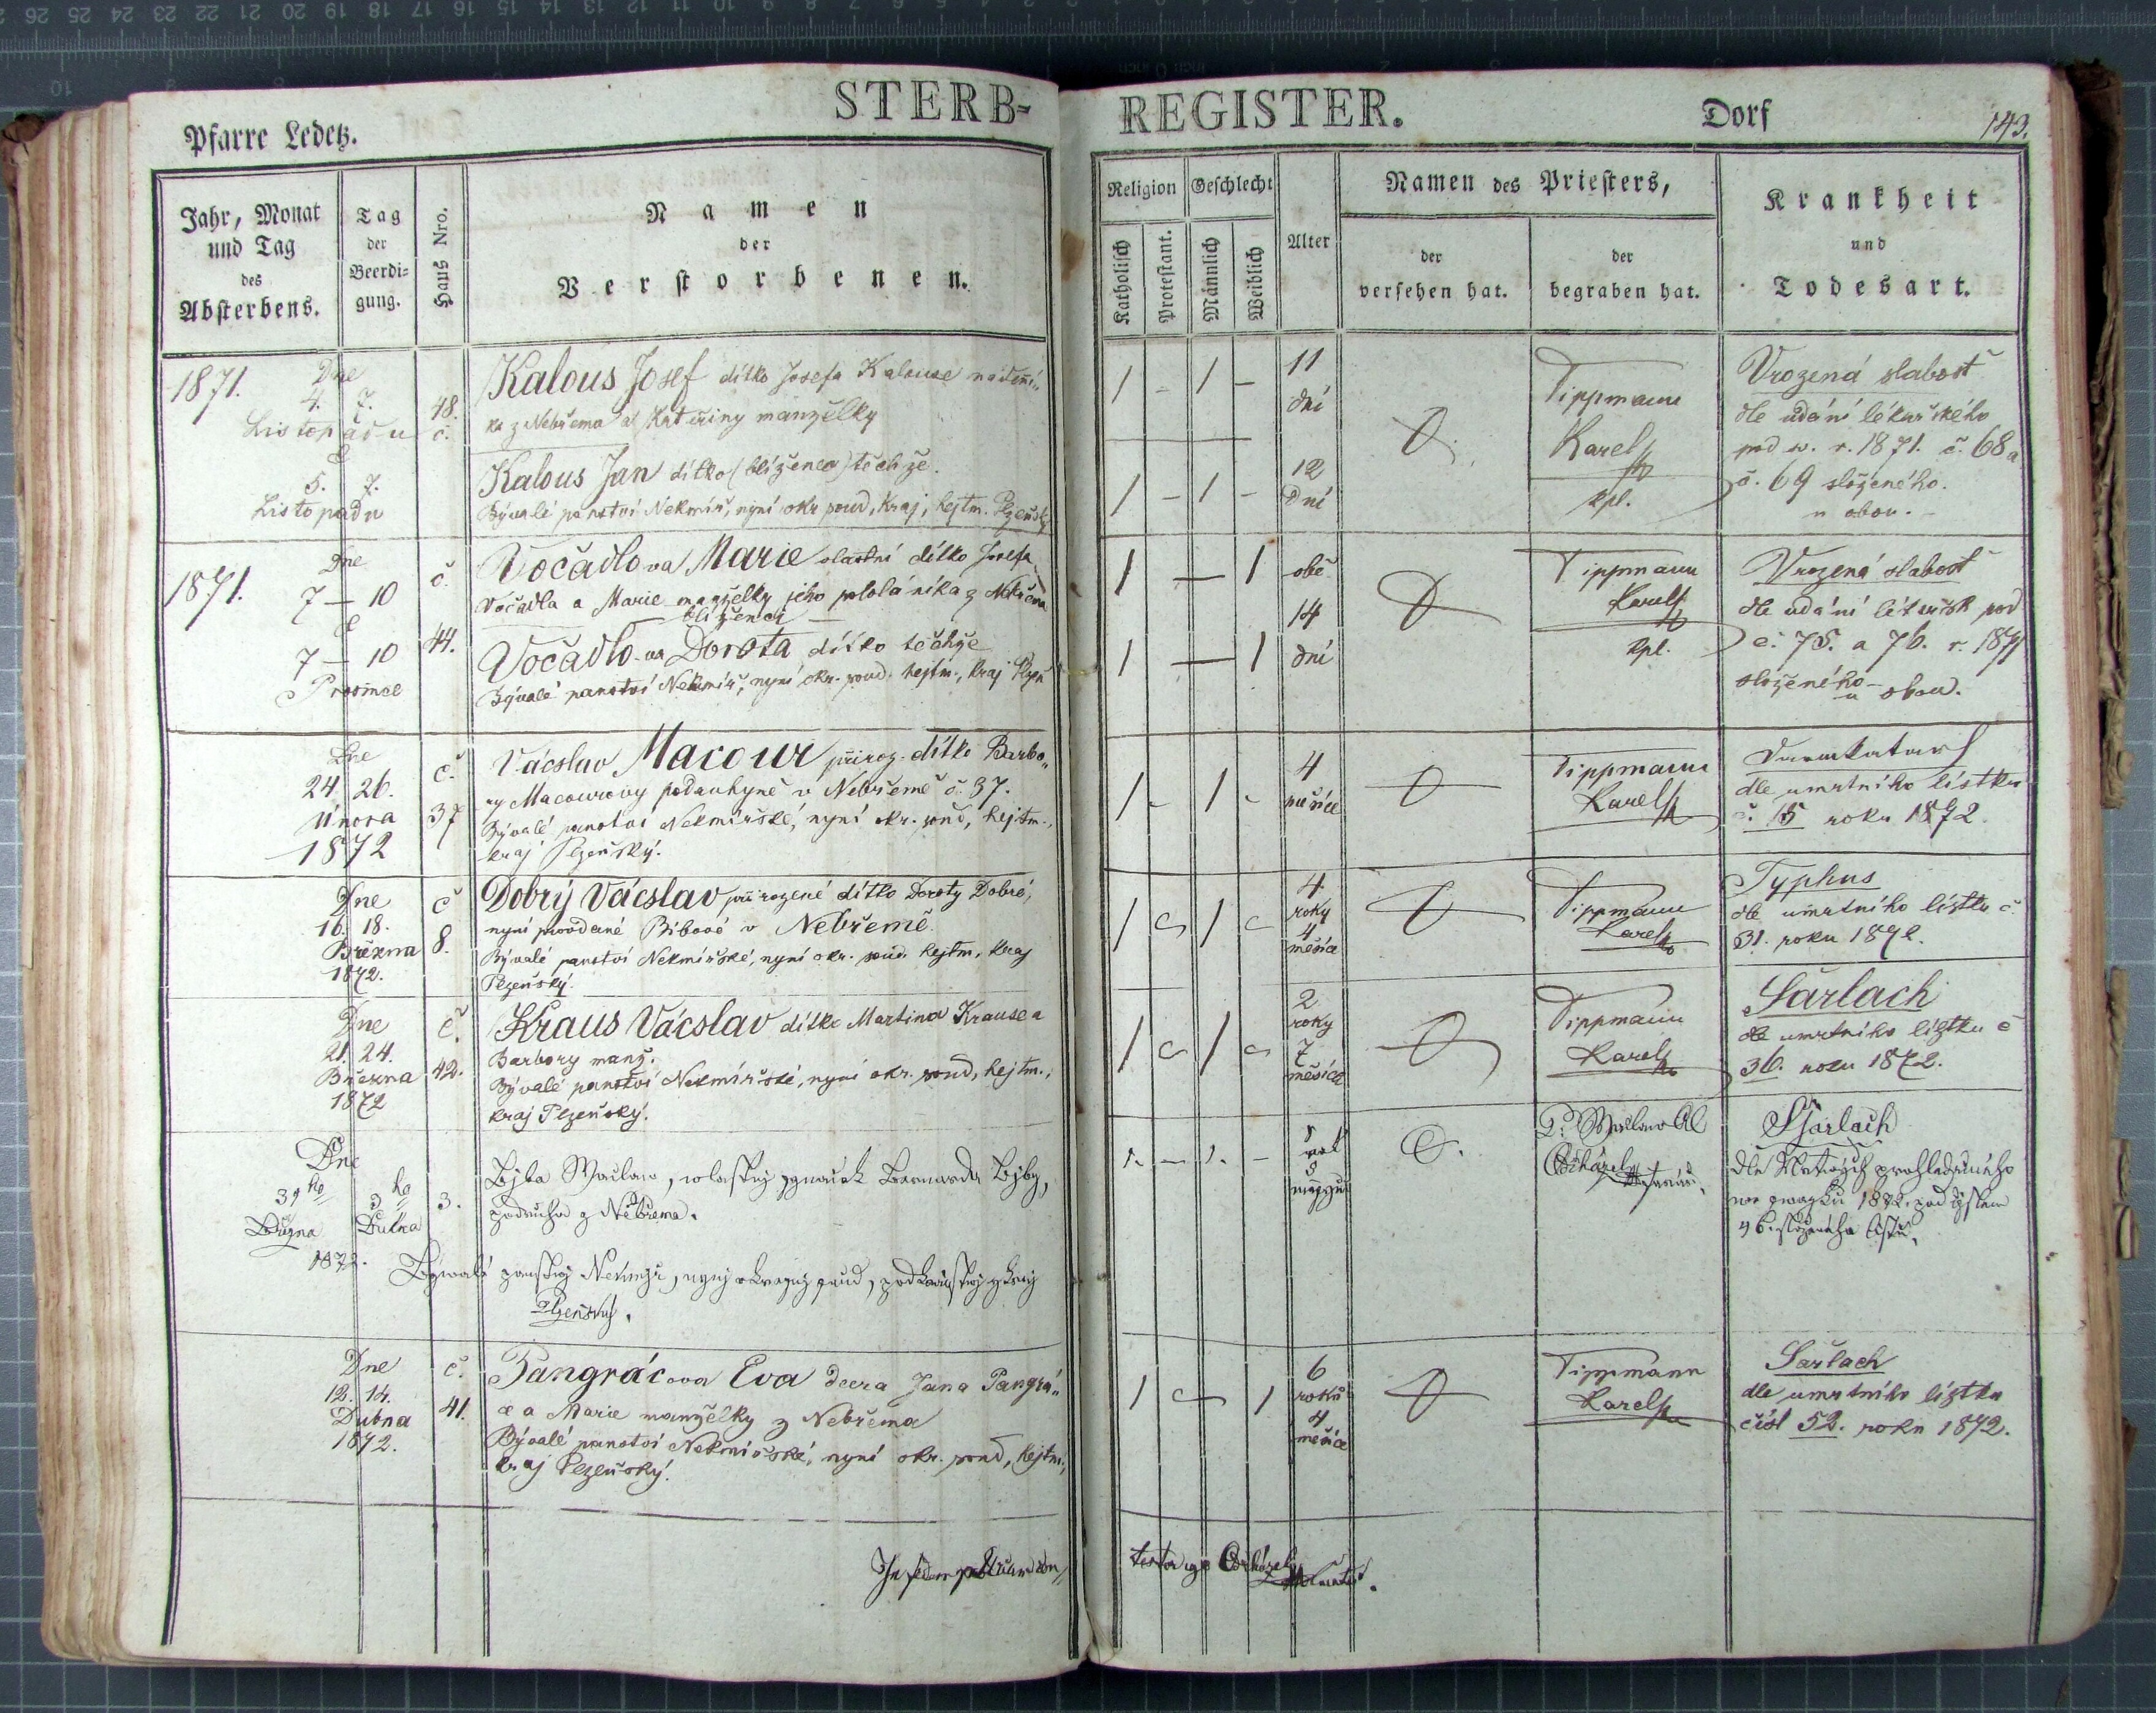 STERB-
REGISTER.
Pfarre Ledetz.
Dorf
143.
Jahr, Monat
und Tag
des
Absterbens.
Tag
der
Beerdi=
gung.
Haus Nro.
Namen
der
Verstorbenen.
Religion
Geschlecht
Katholisch
Protestant.
Männlich
Weiblich
Alter
Namen des Priesters,
der
versehen hat.
der
begraben hat.
Krankheit
und
Todesart.
1871.
Dne
4. 7.
Listopadu
48.
č.
Kalous Josef dítko Josefa Kalouse nádení„
ka z Nebřema a Kateřiny manželky
5. 7.
Listopadu
Kalous Jan dítko (blíženec) těchže.
Bývalé panství Nekmíř, nyní okr. soud, Kraj, hejtm. Plzeňský
1 - 1 -
11
dní
1 - 1 -
12
Dní
Tippmann
Karel
kpl.
Vrozená slabost
dle údání lékařského
pod w. r. 1871. č. 68 a
č. 69 složeného.
u obou.
1871.
Dne
7 — 10
7 — 10
Prosince
č.
44.
Vočadlova Marie vlastní dítko Josefa
Vočadla a Marie manželky jeho pololáníka z Nebřema
blíženci
Vočadlova Dorota dítko těchže
Bývalé panství Nekmíř, nyní okr. soud. hejtm., kraj Plzeň
1 — 1
1 — 1
obě
14
dní
Tippmann
Karel
kpl.
Vrozená slabost
dle udání lékařsk pod
č. 75. a 76. r. 1871
složeného
u obou.
Dne
24. 26.
Února
1872
č.
37
Vácslav Macour přiroz. dítko Barbo„
ry Macourovy podruhyně v Nebřemě č. 37.
Bývalé panství Nekmířské, nyní okr. soud, hejtm.,
kraj Plzeňský.
1 - 1 -
4
měsíce
Tippmann
Karel
dle umrtního lístku
č. 15 roku 1872.
Dne
16. 18.
Března
1872.
č
8.
Dobrý Vácslav přirozené dítko Doroty Dobré,
nyní provdané Bibové v Nebřemě.
Bývalé panství Nekmířské, nyní okr. soud. hejtm, kraj
Plzeňský.
4
roky
4
měsíce
Tippmann
Karel
Typhus
dle umrtního lístku č.
31. roku 1872.
Dne
21. 24.
Března
1872
č.
42.
Kraus Vácslav dítko Martina Krause a
Barbory manž.
Bývalé panství Nekmířské, nyní okr. soud, hejtm.,
kraj Plzeňský.
2
roky
7
měsíců
Tippmann
Karel
Šarlach
dle umrtního lístku č
36. roku 1872.
Dne
31ho 3ho
Března Dubna
1872.
3.
Bejba Waclaw, wlastnj synáček Bernarda Bejby,
podruha z Nebřema.
Bywalé panstwj Nekmjř, nynj okresnj saud,
Plzenský.
1. — 1. —
rok
Ochárek
farář.
Šarlach
dle
1872. pod
46.
Dne
12. 14.
Dubna
1872.
č.
41.
Pangrácova Eva dcera Jana Pangrá„
ce a Marie manželky z Nebřema
Bývalé panství Nekmířské, nyní okr. soud, hejtm.,
kraj Plzeňský.
1 1
6
roků
4
měsíce
Tippmann
Karel
Šarlach
dle umrtního lístku
čísl 52. roku 1872.
In fidem
testor ego Ochárek